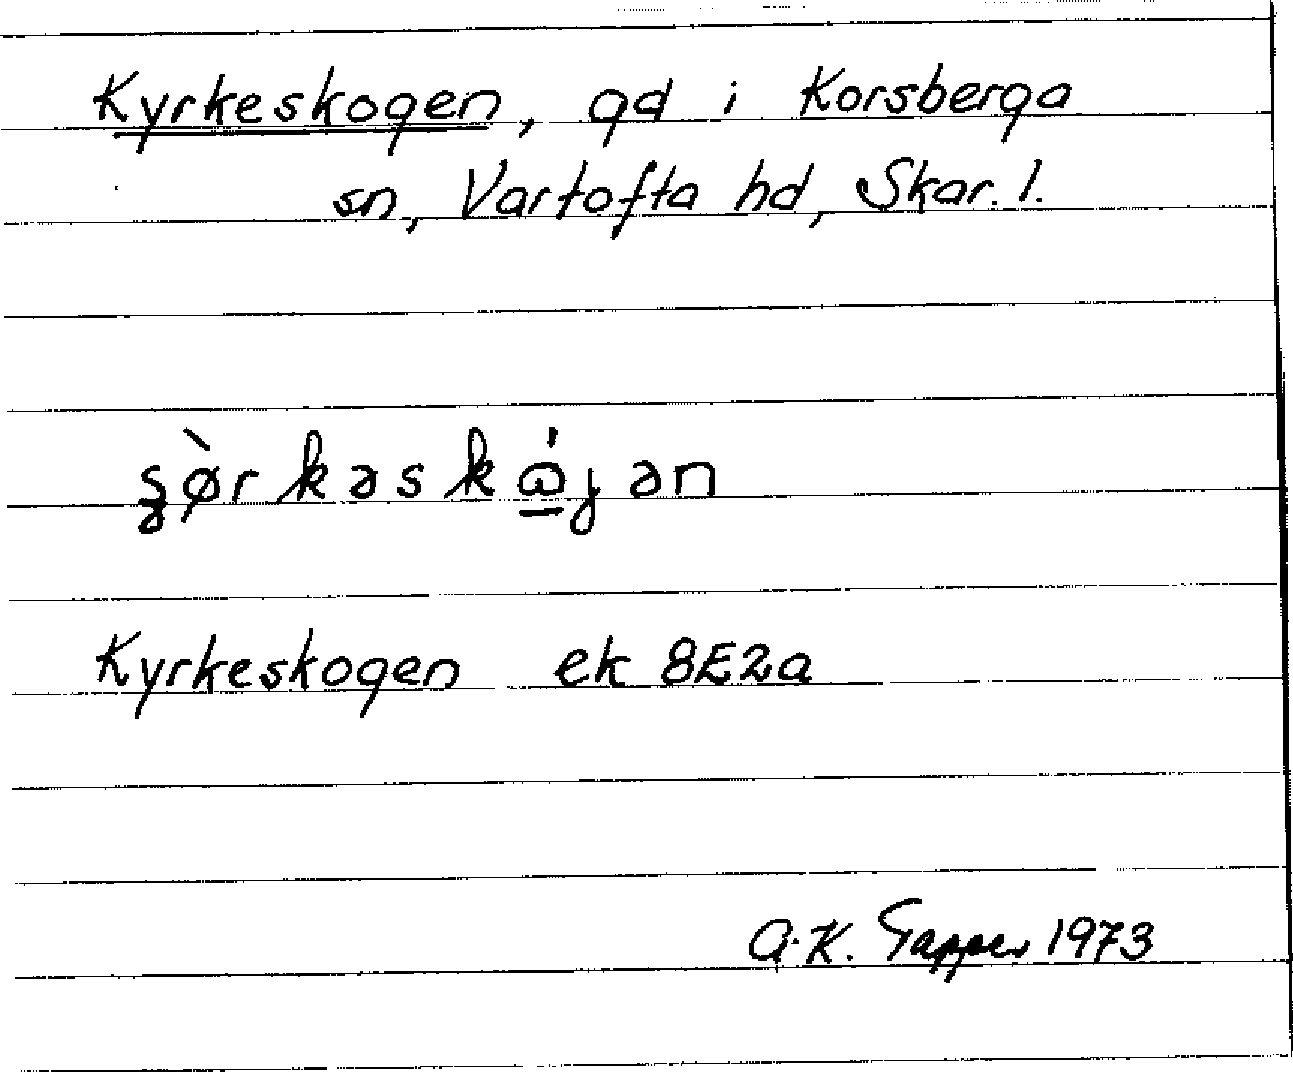 Kyrkeskogen, gd i Korsberga
sn, Vartofta hd, Skar. l.
ʂø̀rkəskɷ̲́jən
Kyrkeskogen ek 8E2a
A.K. Tapper 1973